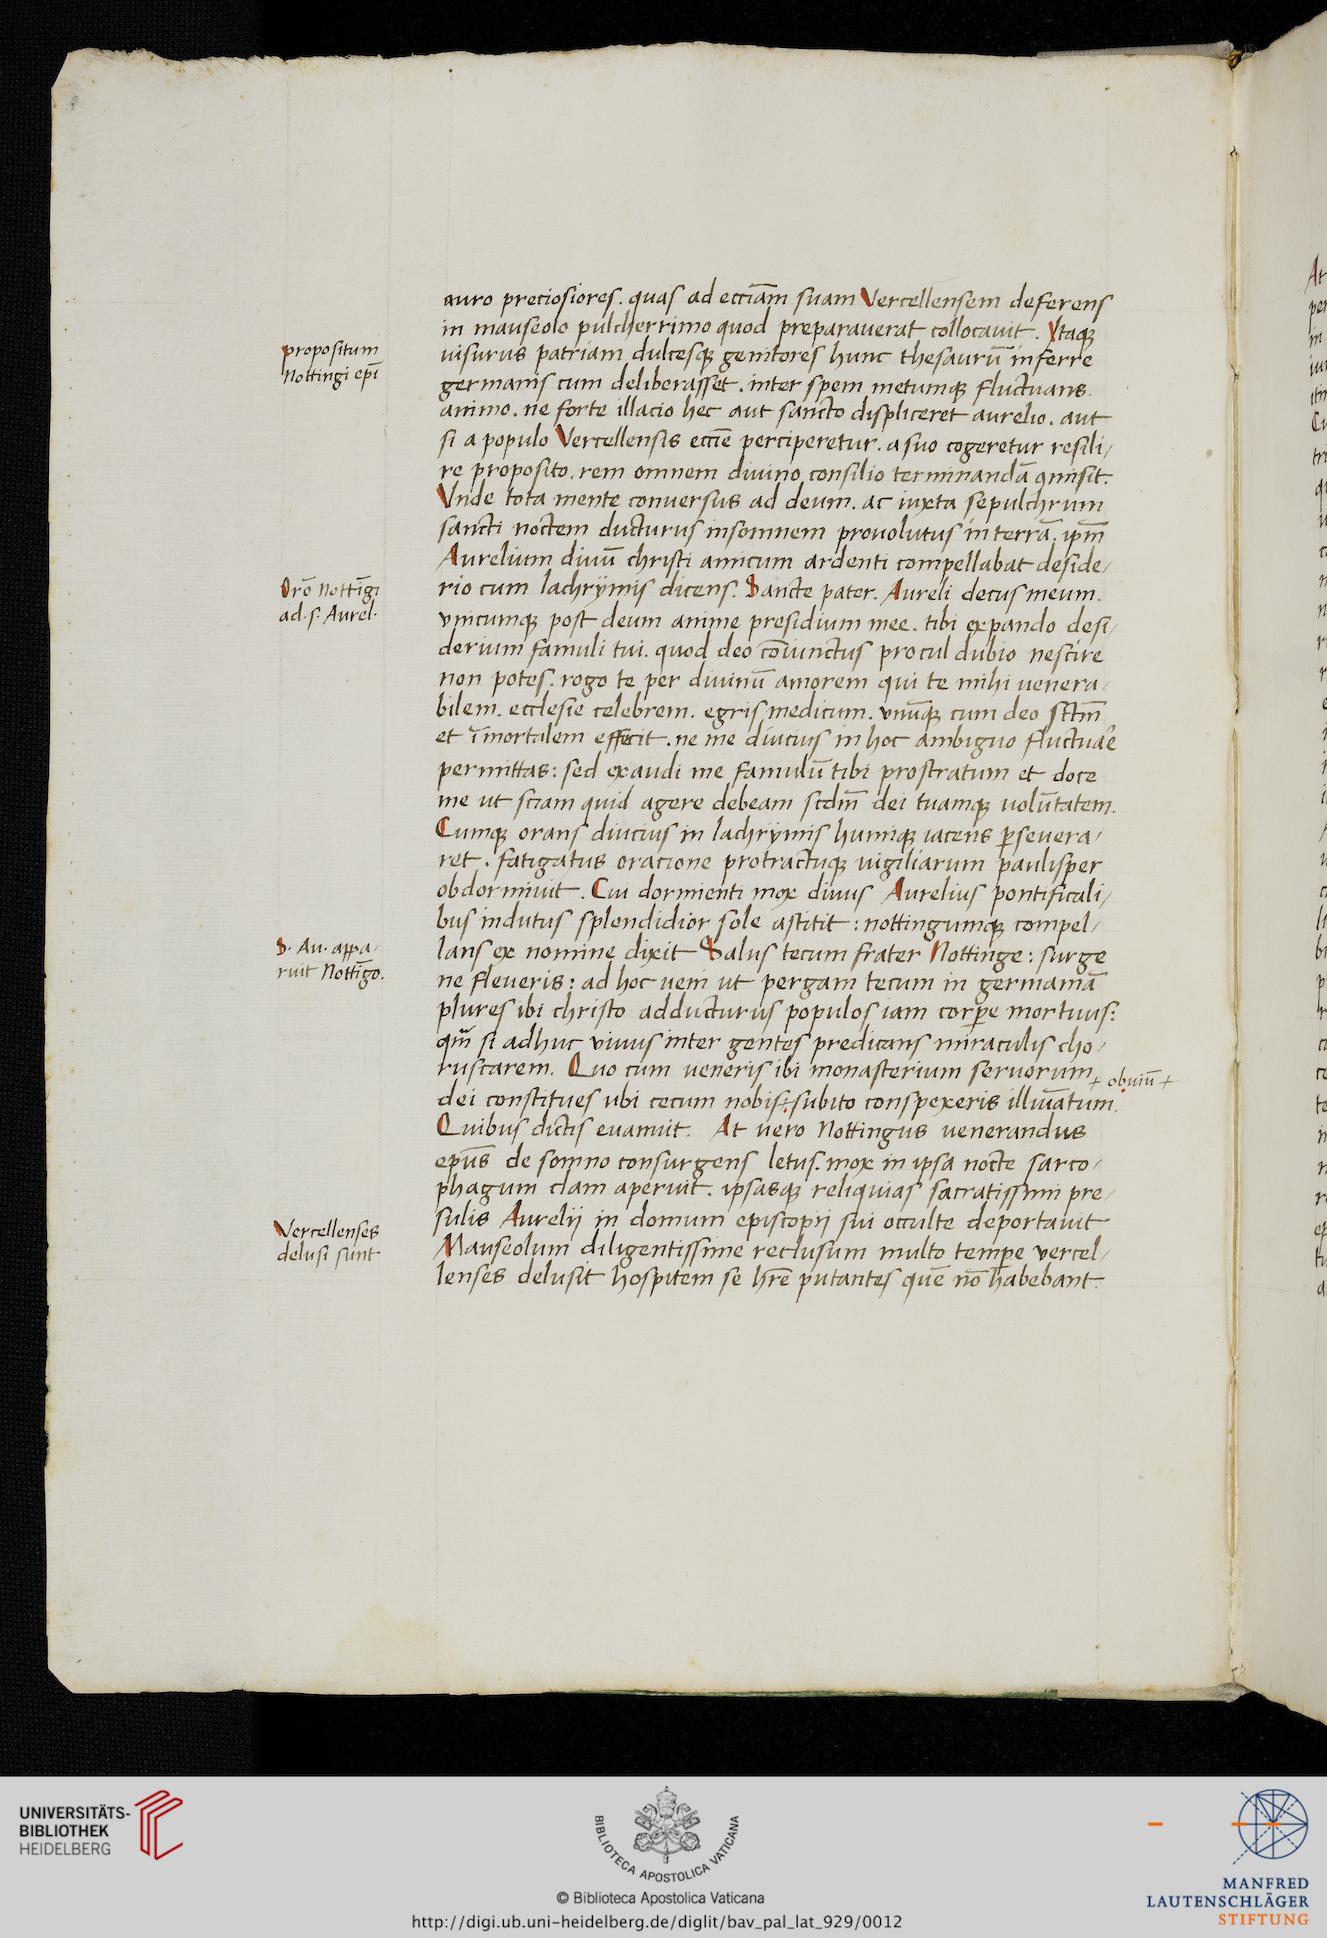 auro preciosiores. quas ad eccīam suam Vercellensem deferens
in mauseolo pulcherrimo quod preparauerat collocauit. Ytaqꝫ
propositum
Nottingi epī
uisurus patriam dulcesqꝫ genitores hunc thesaurū inferre
germanis cum deliberasset. inter spem metumqꝫ fluctuans
animo. ne forte illacio hec aut sancto displiceret aurelio. aut
si a populo Vercellensis eccīe perciperetur. a suo cogeretur resili/
re proposito. rem omnem diuino consilio terminandā ꝯmisit.
Vnde tota mente conuersus ad deum. ac iuxta sepulchrum
sancti noctem ducturus insomnem prouolutus in terrā. ipm̄
Aurelium diuū christi amicum ardenti compellabat deside/
Orō Nottīgi
ad. s. Aurel.
rio cum lachrÿmis dicens. Sancte pater. Aureli decus meum.
vnicumqꝫ post deum anime presidium mee. tibi expando desi/
derium famuli tui. quod deo cōiunctus procul dubio nescire
non potes. rogo te per diuinū amorem qui te mihi uenera/
bilem. ecclesie celebrem. egris medicum. vnūqꝫ cum deo sc̄tm̄
et īmortalem effecit. ne me diucius in hoc ambiguo fluctuar̄e
permittas: sed exaudi me famulū tibi prostratum et doce
me ut sciam quid agere debeam scdm̄ dei tuamqꝫ volūtatem.
Cumqꝫ orans diucius in lachrÿmis humiqꝫ iacens ꝑseuera/
ret. fatigatus oracione protractuqꝫ uigiliarum paulisper
obdormiuit. Cui dormienti mox diuus Aurelius pontificali/
bus indutus splendidior sole astitit: nottingumqꝫ compel/
S. Au. appa/
ruit Nottīgo.
lans ex nomine dixit Salus tecum frater Nottinge: surge
ne fleueris: ad hoc ueni ut pergam tecum in germaniā
plures ibi christo adducturus populos iam corꝑe mortuus:
qm̄ si adhuc viuus inter gentes predicans miraculis cho/
ruscarem. Quo cum ueneris ibi monasterium seruorum
+ obuiū +
dei constitues ubi cecum nobis: subito conspexeris illuīatum.
Quibus dictis euanuit. At uero Nottingus venerandus
epūs de somno consurgens letus. mox in ipsa nocte sarco/
phagum clam aperuit. ipsasqꝫ reliquias sacratissimi pre/
Vercellenses
delusi sunt
sulis Aurelij in domum episcopij sui occulte deportauit
Mauseolum diligentissime reclusum multo temꝑe vercel/
lenses delusit hospitem se hr̄e putantes quē nō habebant.
UNIVERSITÄTS-
BIBLIOTHEK
HEIDELBERG
BIBLIOTECA APOSTOLICA VATICANA
© Biblioteca Apostolica Vaticana
http://digi.ub.uni-heidelberg.de/diglit/bav_pal_lat_929/0012
MANFRED
LAUTENSCHLÄGER
STIFTUNG